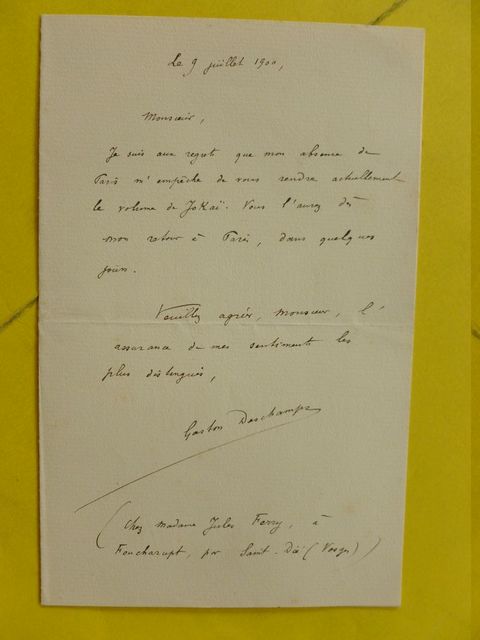 Le 9 juillet 1900,
Monsieur,
Je suis aux regrets que mon absence de
Paris m'empêche de vous rendre actuellement
le volume de Jokaï. Vous l'aurez dès
mon retour à Paris, dans quelques
jours.
Veuillez agréer, Monsieur, l'
assurance de mes sentiments les
plus distingués,
Gaston Deschamps
(Chez Madame Jules Ferry, à
Foucharupt, par Saint-Dié (Vosges))